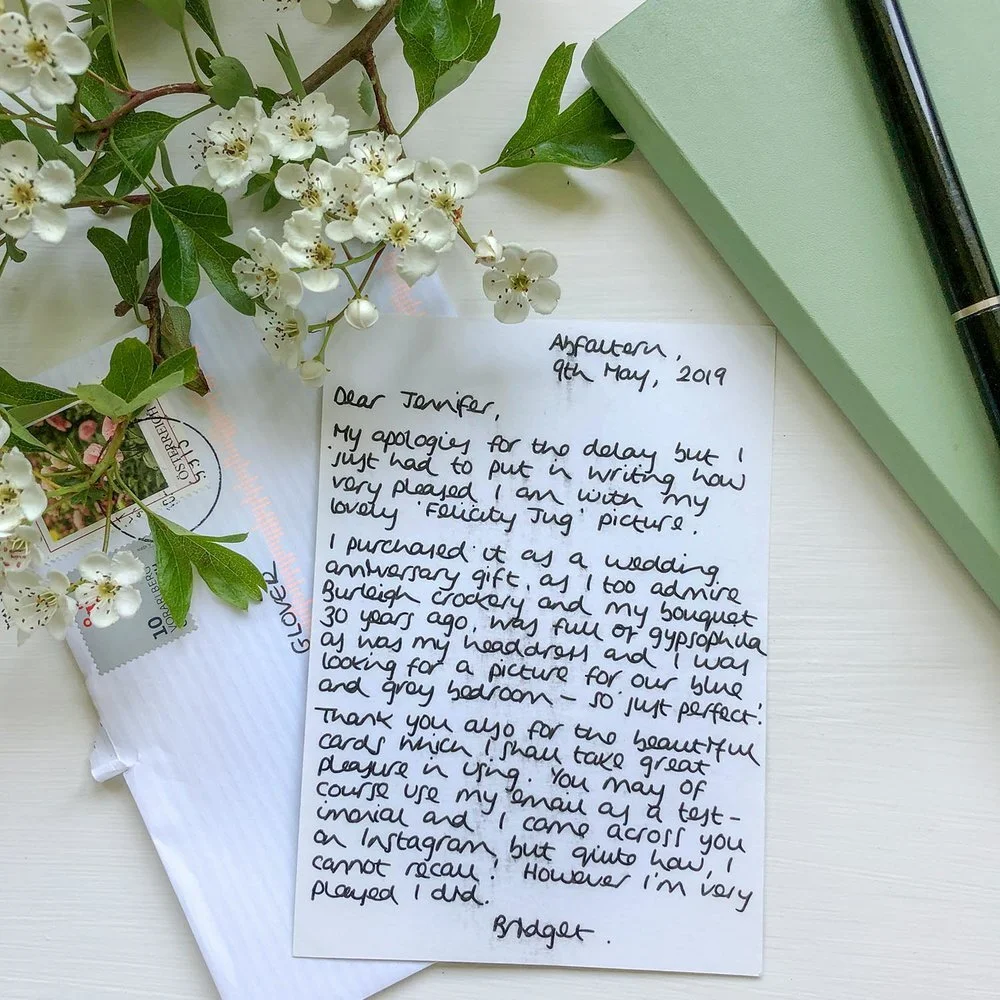 Abfaltern,
9th May, 2019
Dear Jennifer,
My apologies for the delay but I
just had to put in writing how
very pleased I am with my
lovely 'Felicity Jug' picture.
I purchased it as a wedding
anniversary gift, as I too admire
Burleigh crockery and my bouquet
30 years ago, was full of gypsophila
as was my headdress and I was
looking for a picture for our blue
and grey bedroom - so just perfect!
Thank you also for the beautiful
cards which I shall take great
pleasure in using. You may of
course use my email as a test-
imonial and I came across you
on Instagram, but quite how, I
cannot recall! However I'm very
pleased I did.
Bridget.
ÖSTERREICH
GLOVER
10
VORARLBERG